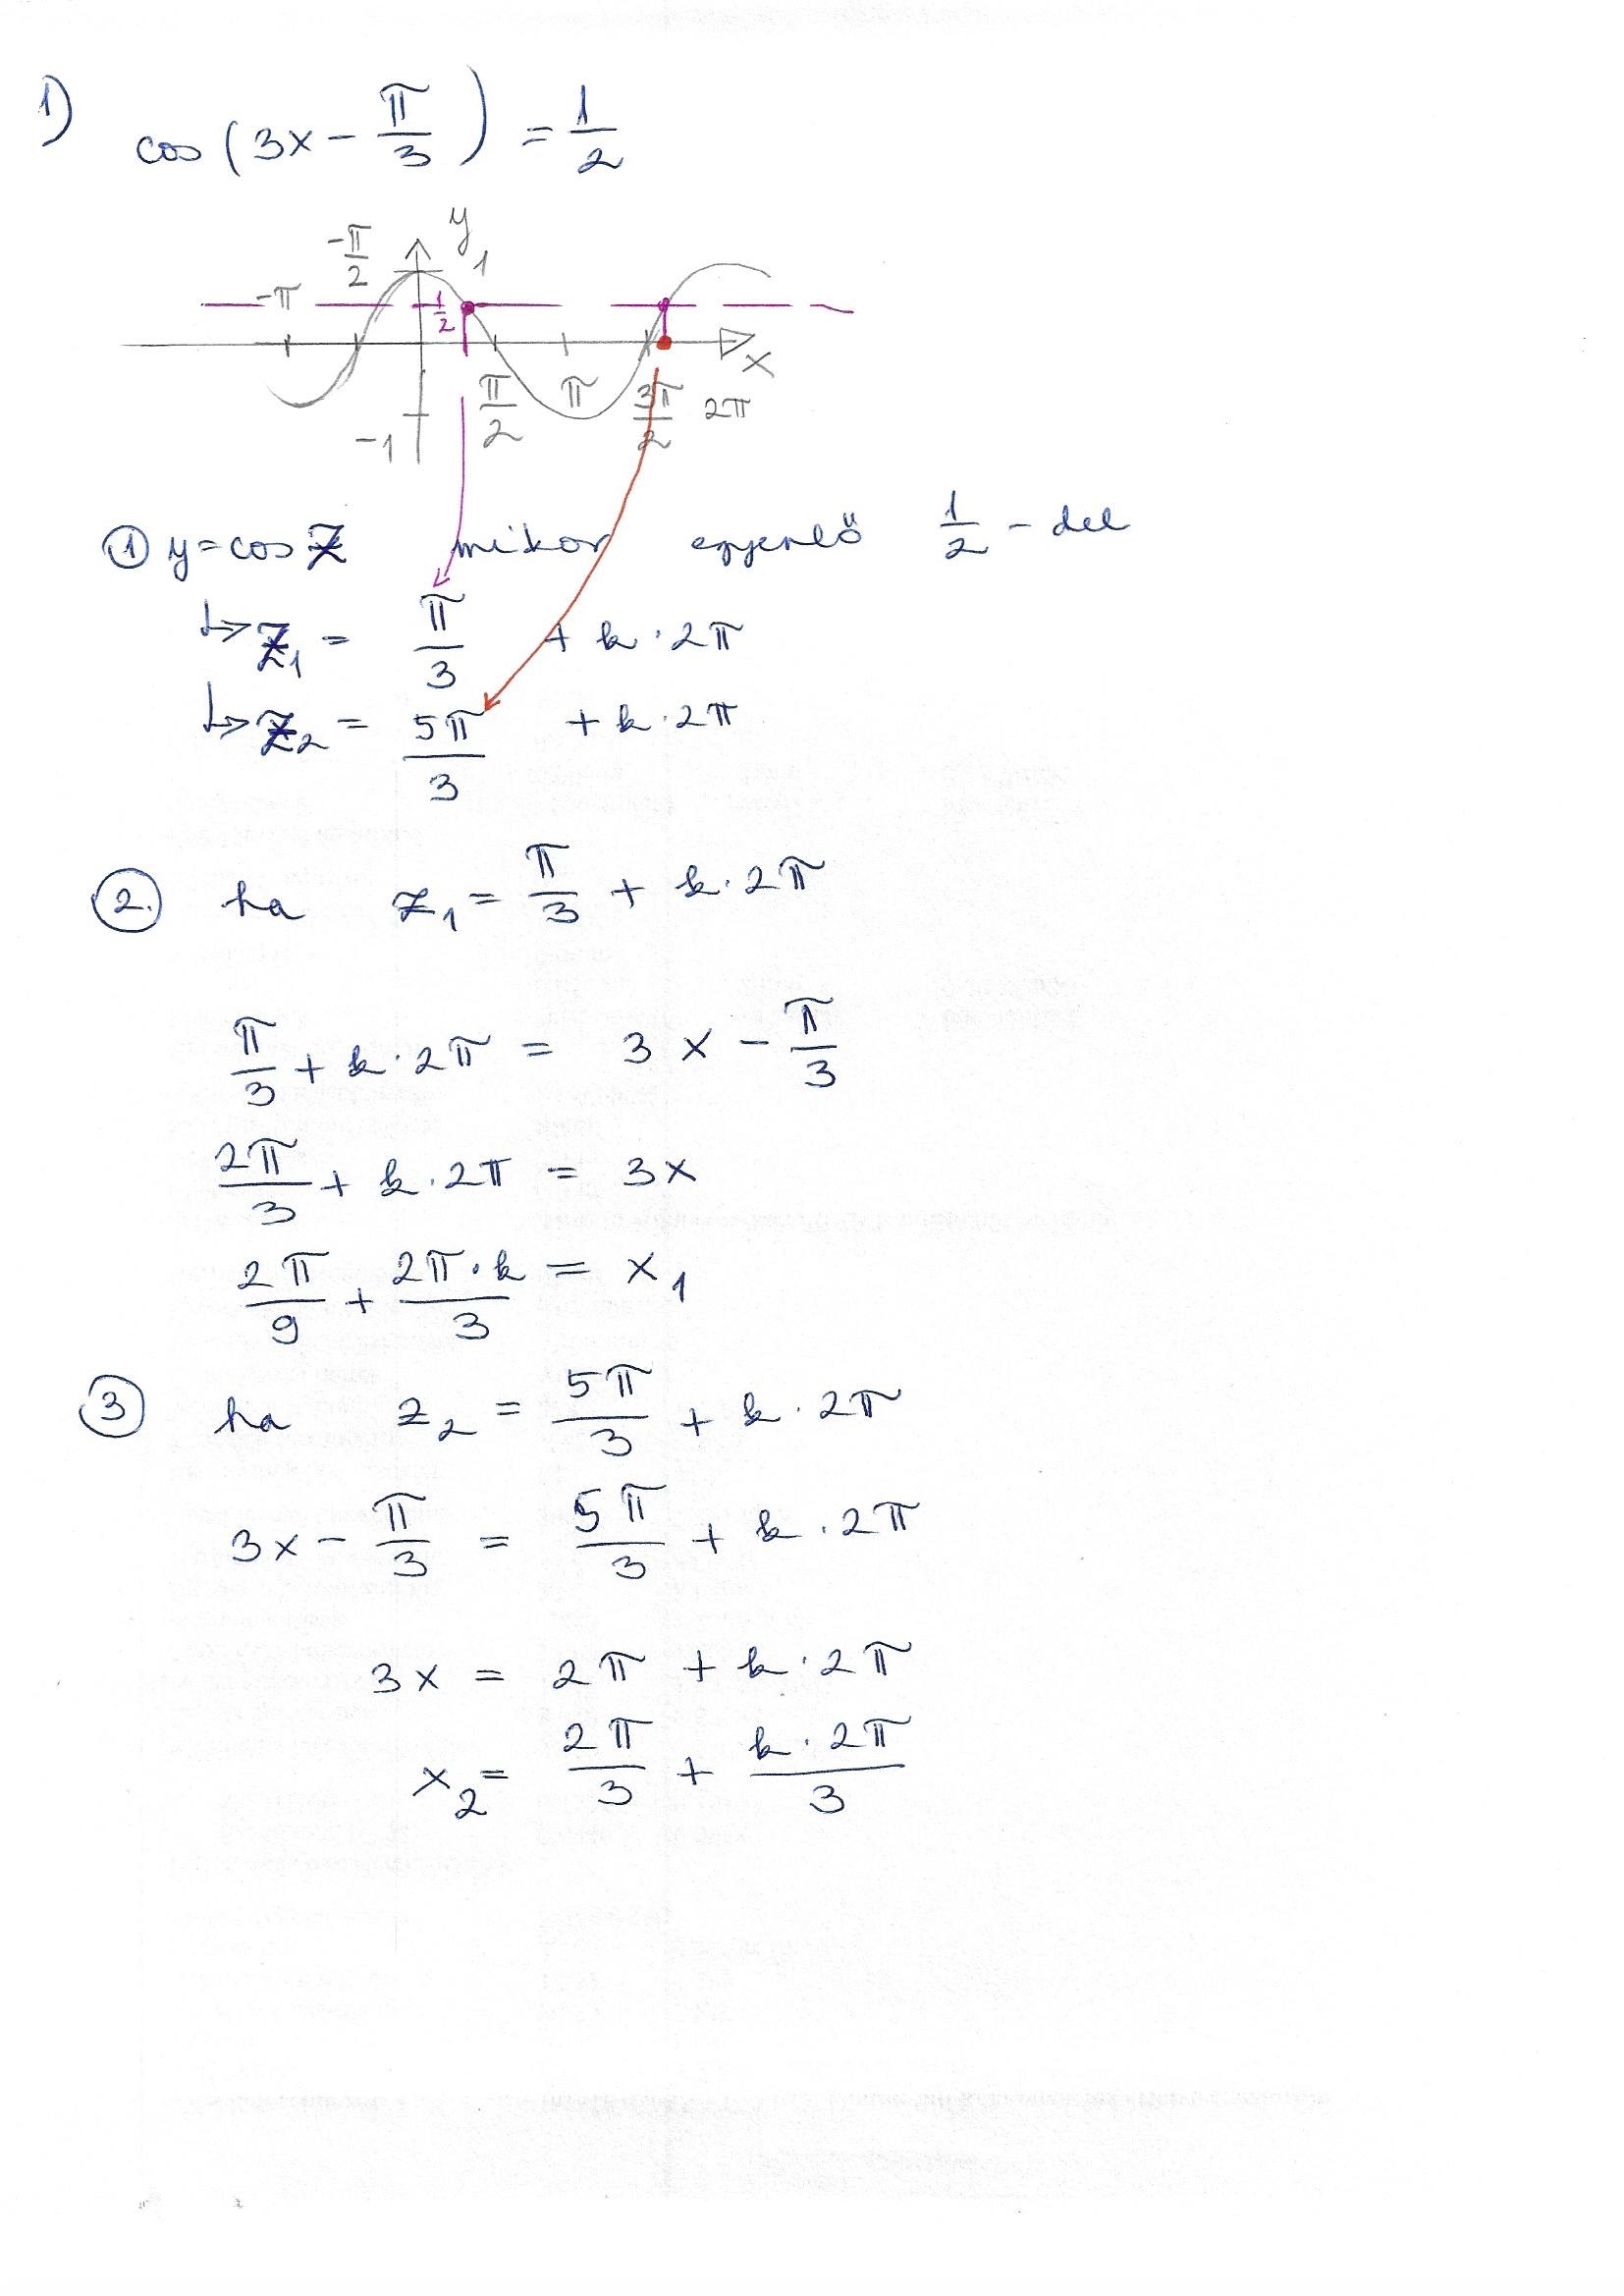 1) cos(3x - π/3) = 1/2
y
-π/2
1
-π
1/2
x
π/2 π 3π/2 2π
-1
① y = cos z mikor egyenlő 1/2 - del
↳ z₁ = π/3 + k · 2π
↳ z₂ = 5π/3 + k · 2π
②. ha z₁ = π/3 + k · 2π
π/3 + k · 2π = 3x - π/3
2π/3 + k · 2π = 3x
2π/9 + 2π · k/3 = x₁
③ ha z₂ = 5π/3 + k · 2π
3x - π/3 = 5π/3 + k · 2π
3x = 2π + k · 2π
x₂ = 2π/3 + k · 2π/3